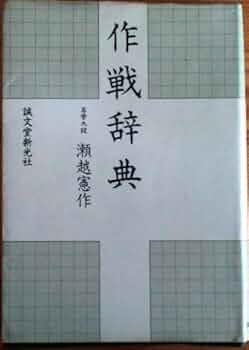 作戦辞典
名誉九段
瀬越憲作
誠文堂新光社